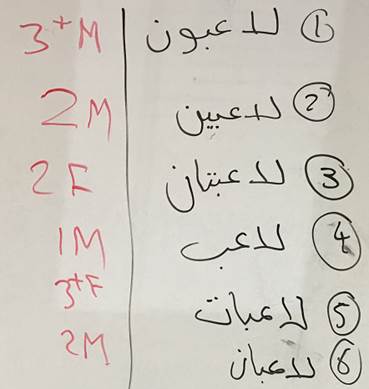 ① لاعبون 3+M
② لاعبين 2M
③ لاعبتان 2F
④ لاعب 1M
⑤ لاعبات 3+F
⑥ لاعبان 2M